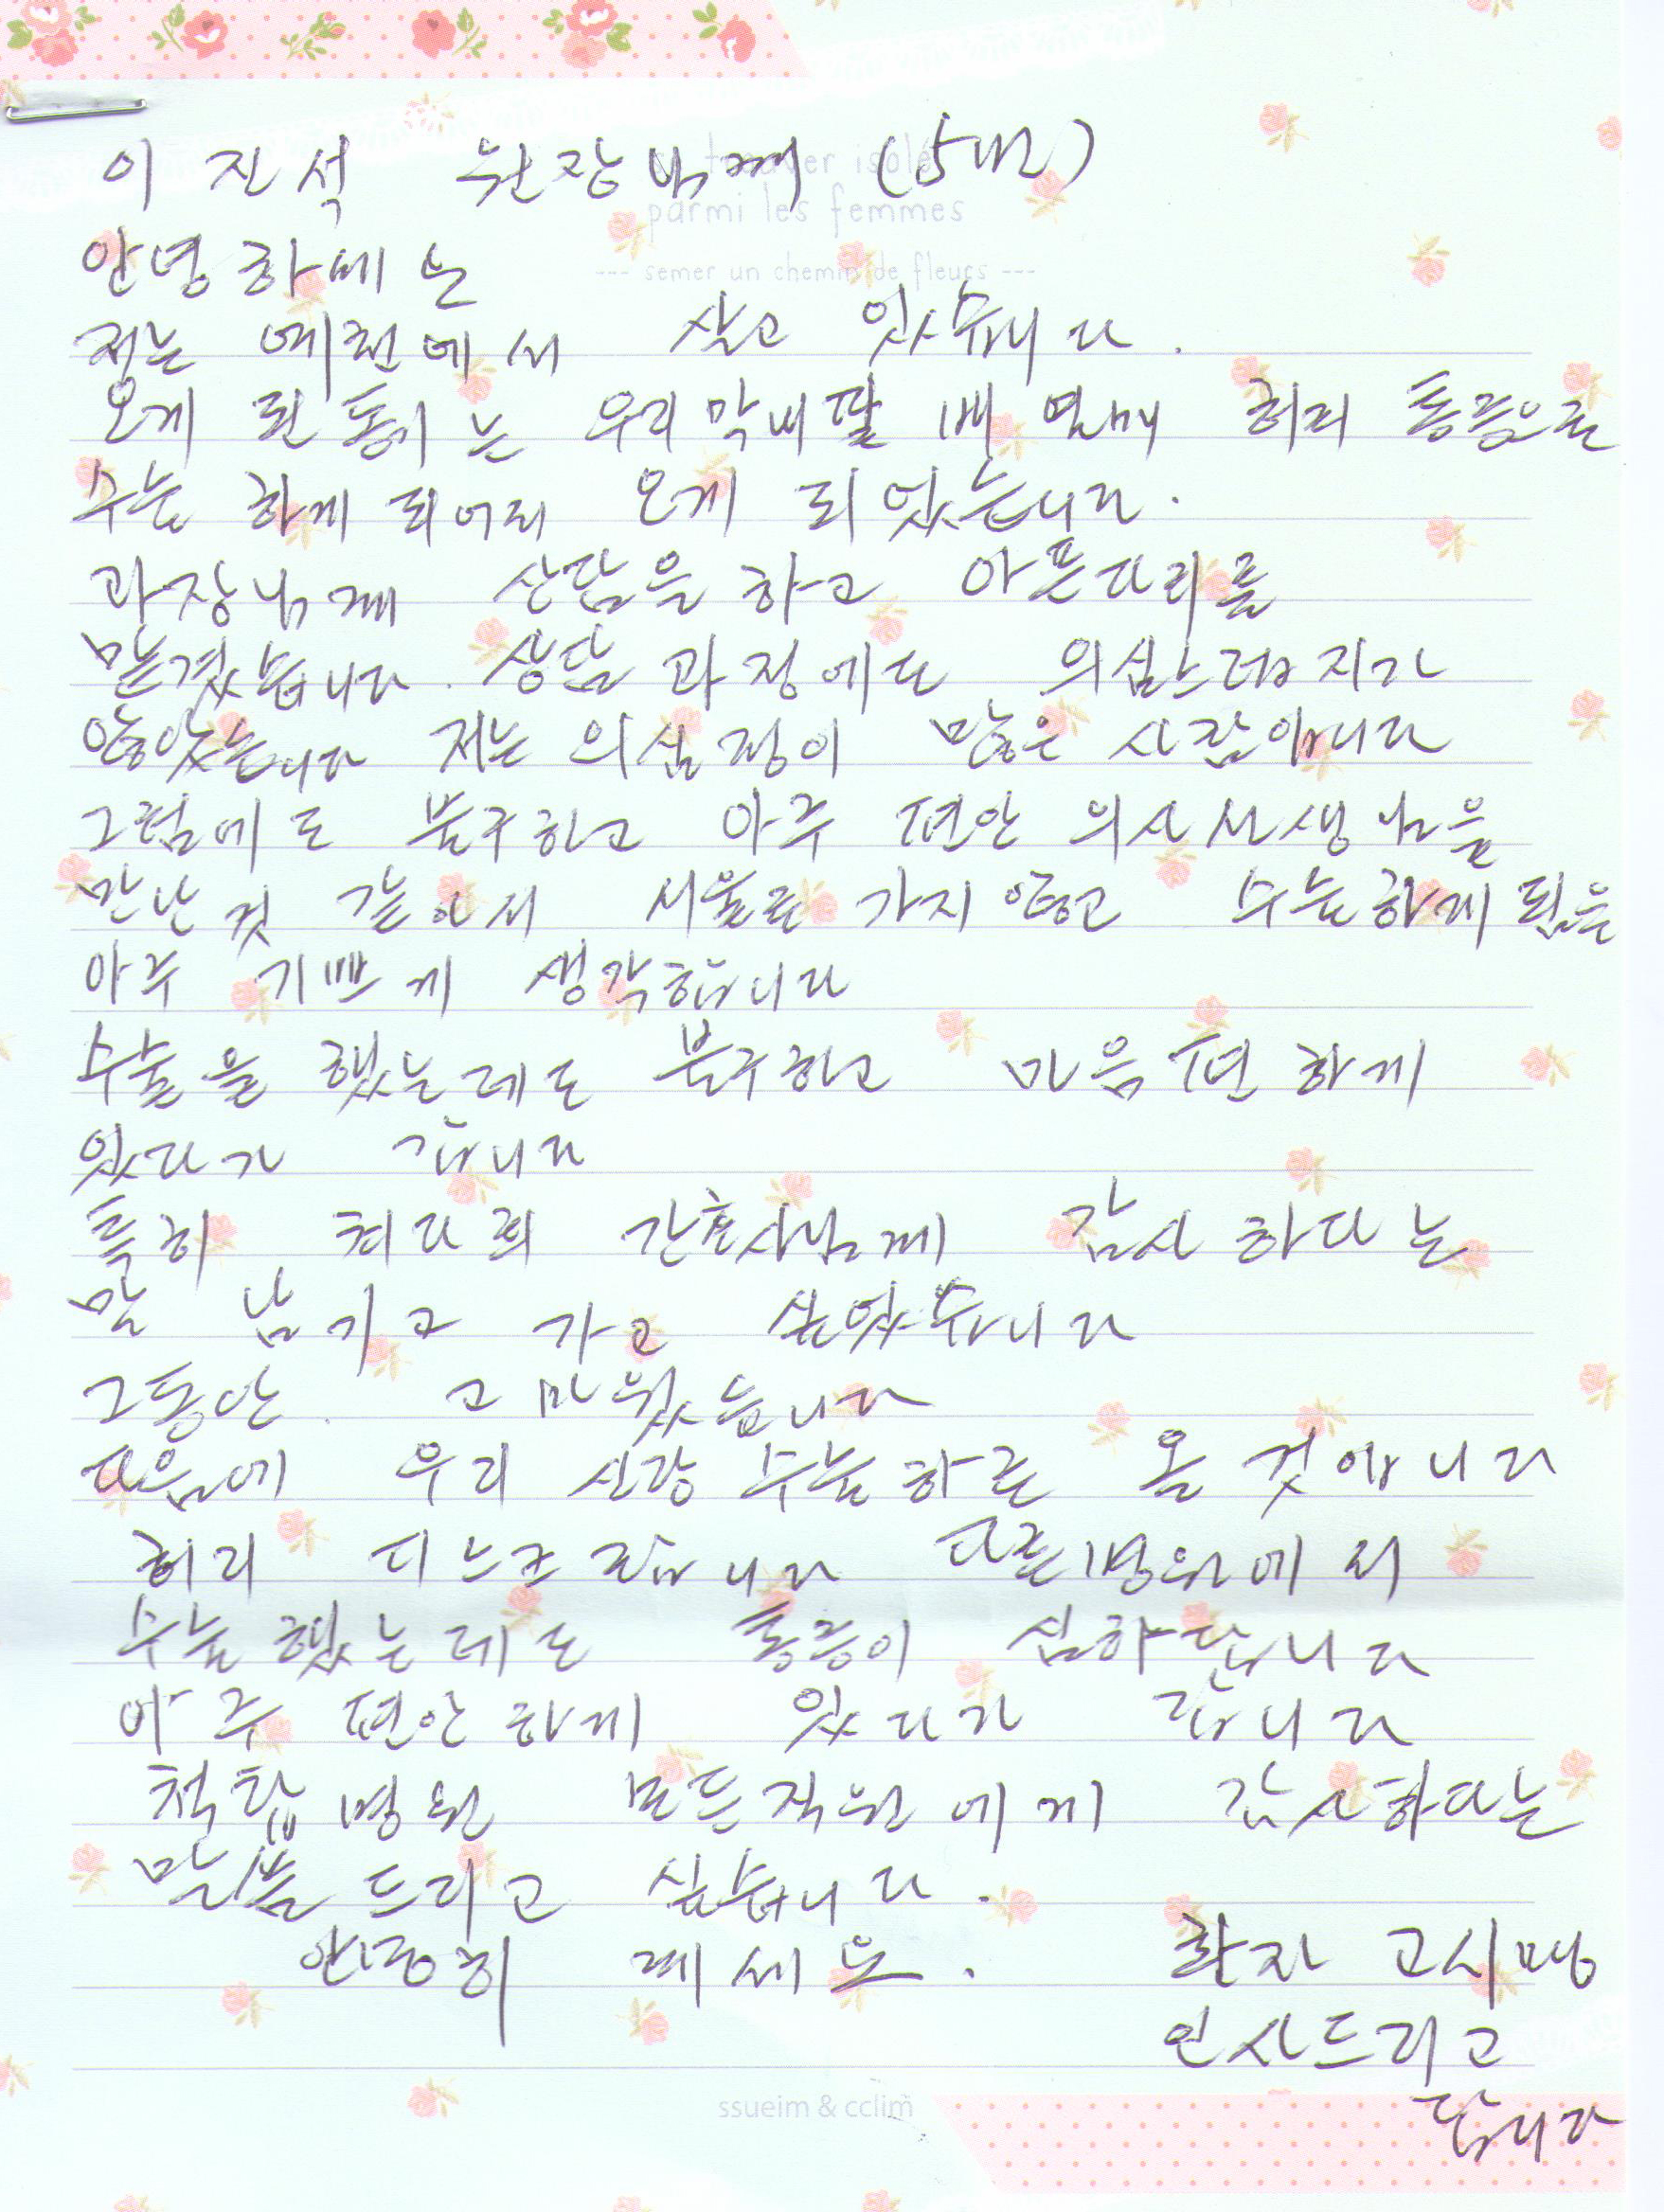 이 진석 원장님께 (5번)
se trouver isolé
parmi les femmes
--- semer un chemin de fleurs ---
안녕하세요
저는 예천에서 살고 있습니다.
오게 된 동기는 우리막내딸 허리 통증으로
수술 하게 되어 오게 되었습니다.
과장님께 상담을 하고 아픈다리를
맡겼습니다. 상담 과정에도 의심스러지가
않았습니다 저는 의심정이 많은 사람입니다
그럼에도 불구하고 아주 편안 의사선생님을
만난것 같아서 서울로 가지 않고 수술하게 됨을
아주 기쁘게 생각합니다
수술을 했는데도 불구하고 마음편하게
있다가 갑니다
특히 간호사님께 감사하다는
말 남기고 가고 싶었습니다
그동안. 고마웠습니다
다음에 우리 신랑 수술하로 올 것입니다
허리 디스크랍니다 다른병원에서
수술했는데도 통증이 심하답니다
아주 편안하게 있다가 갑니다
척탑병원 모든직원에게 감사하다는
말씀드리고 싶습니다.
안녕히 계세요. 환자
인사드리고
갑니다
ssueim & cclim